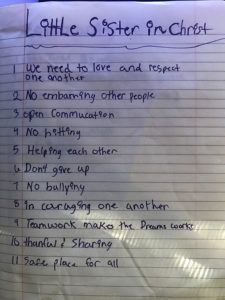 Little Sister in Christ
1 We need to love and respect
one another
2 No embarrassing other people
3 open Commucation
4 No hitting
5 Helping each other
6 Don't give up
7 No bullying
8 in caruging one another
9 Teamwork makes the Dreams works
10 thanful & Sharing
11 Safe place for all